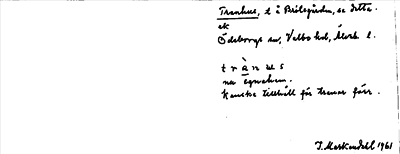 Tranhus, t å Brötegården, se detta.
ek
Ödeborgs sn, Valbo hd, Älvsb. l.
trànus
nu egnahem.
Kanske tillhåll för tranor förr.
I. Markendahl 1961